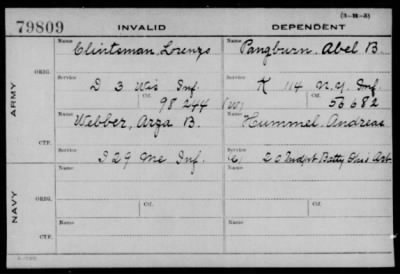 (3-M-3)
79809 INVALID DEPENDENT
ARMY
ORIG.
Name
Clintsman, Lorenzo
Name
Pangburn, Abel B.
Service
D 3 Wis Inf.
Ctf.
98244
Service
K 114 N.Y. Inf.
Ctf.
(W) 53682
CTF.
Name
Webber, Arza B.
Name
Hummel, Andreas
Service
I 29 Me Inf.
Service
(C) 20 Indpt Batty Ohio Art.
NAVY
ORIG.
Name
Name
Service
Ctf.
Service
Ctf.
CTF.
Name
Name
Service
Service